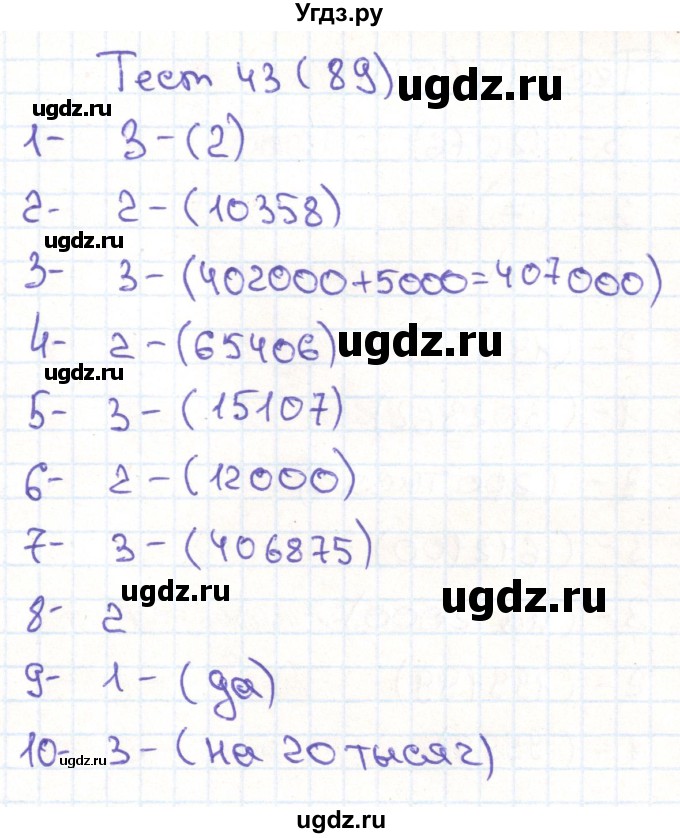 Угдз.ру
Тест 43 (89)
ugdz.ru
ugdz.ru
1- 3-(2)
2- 2-(10358)
ugdz.ru
3- 3-(402000+5000=407000)
4- 2-(65406)
ugdz.ru
ugdz.ru
5- 3-(15107)
6- 2-(12000)
7- 3-(406875)
ugdz.ru
ugdz.ru
8- 2
9- 1-(да)
10- 3-(на 20 тысяч)
ugdz.ru
ugdz.ru